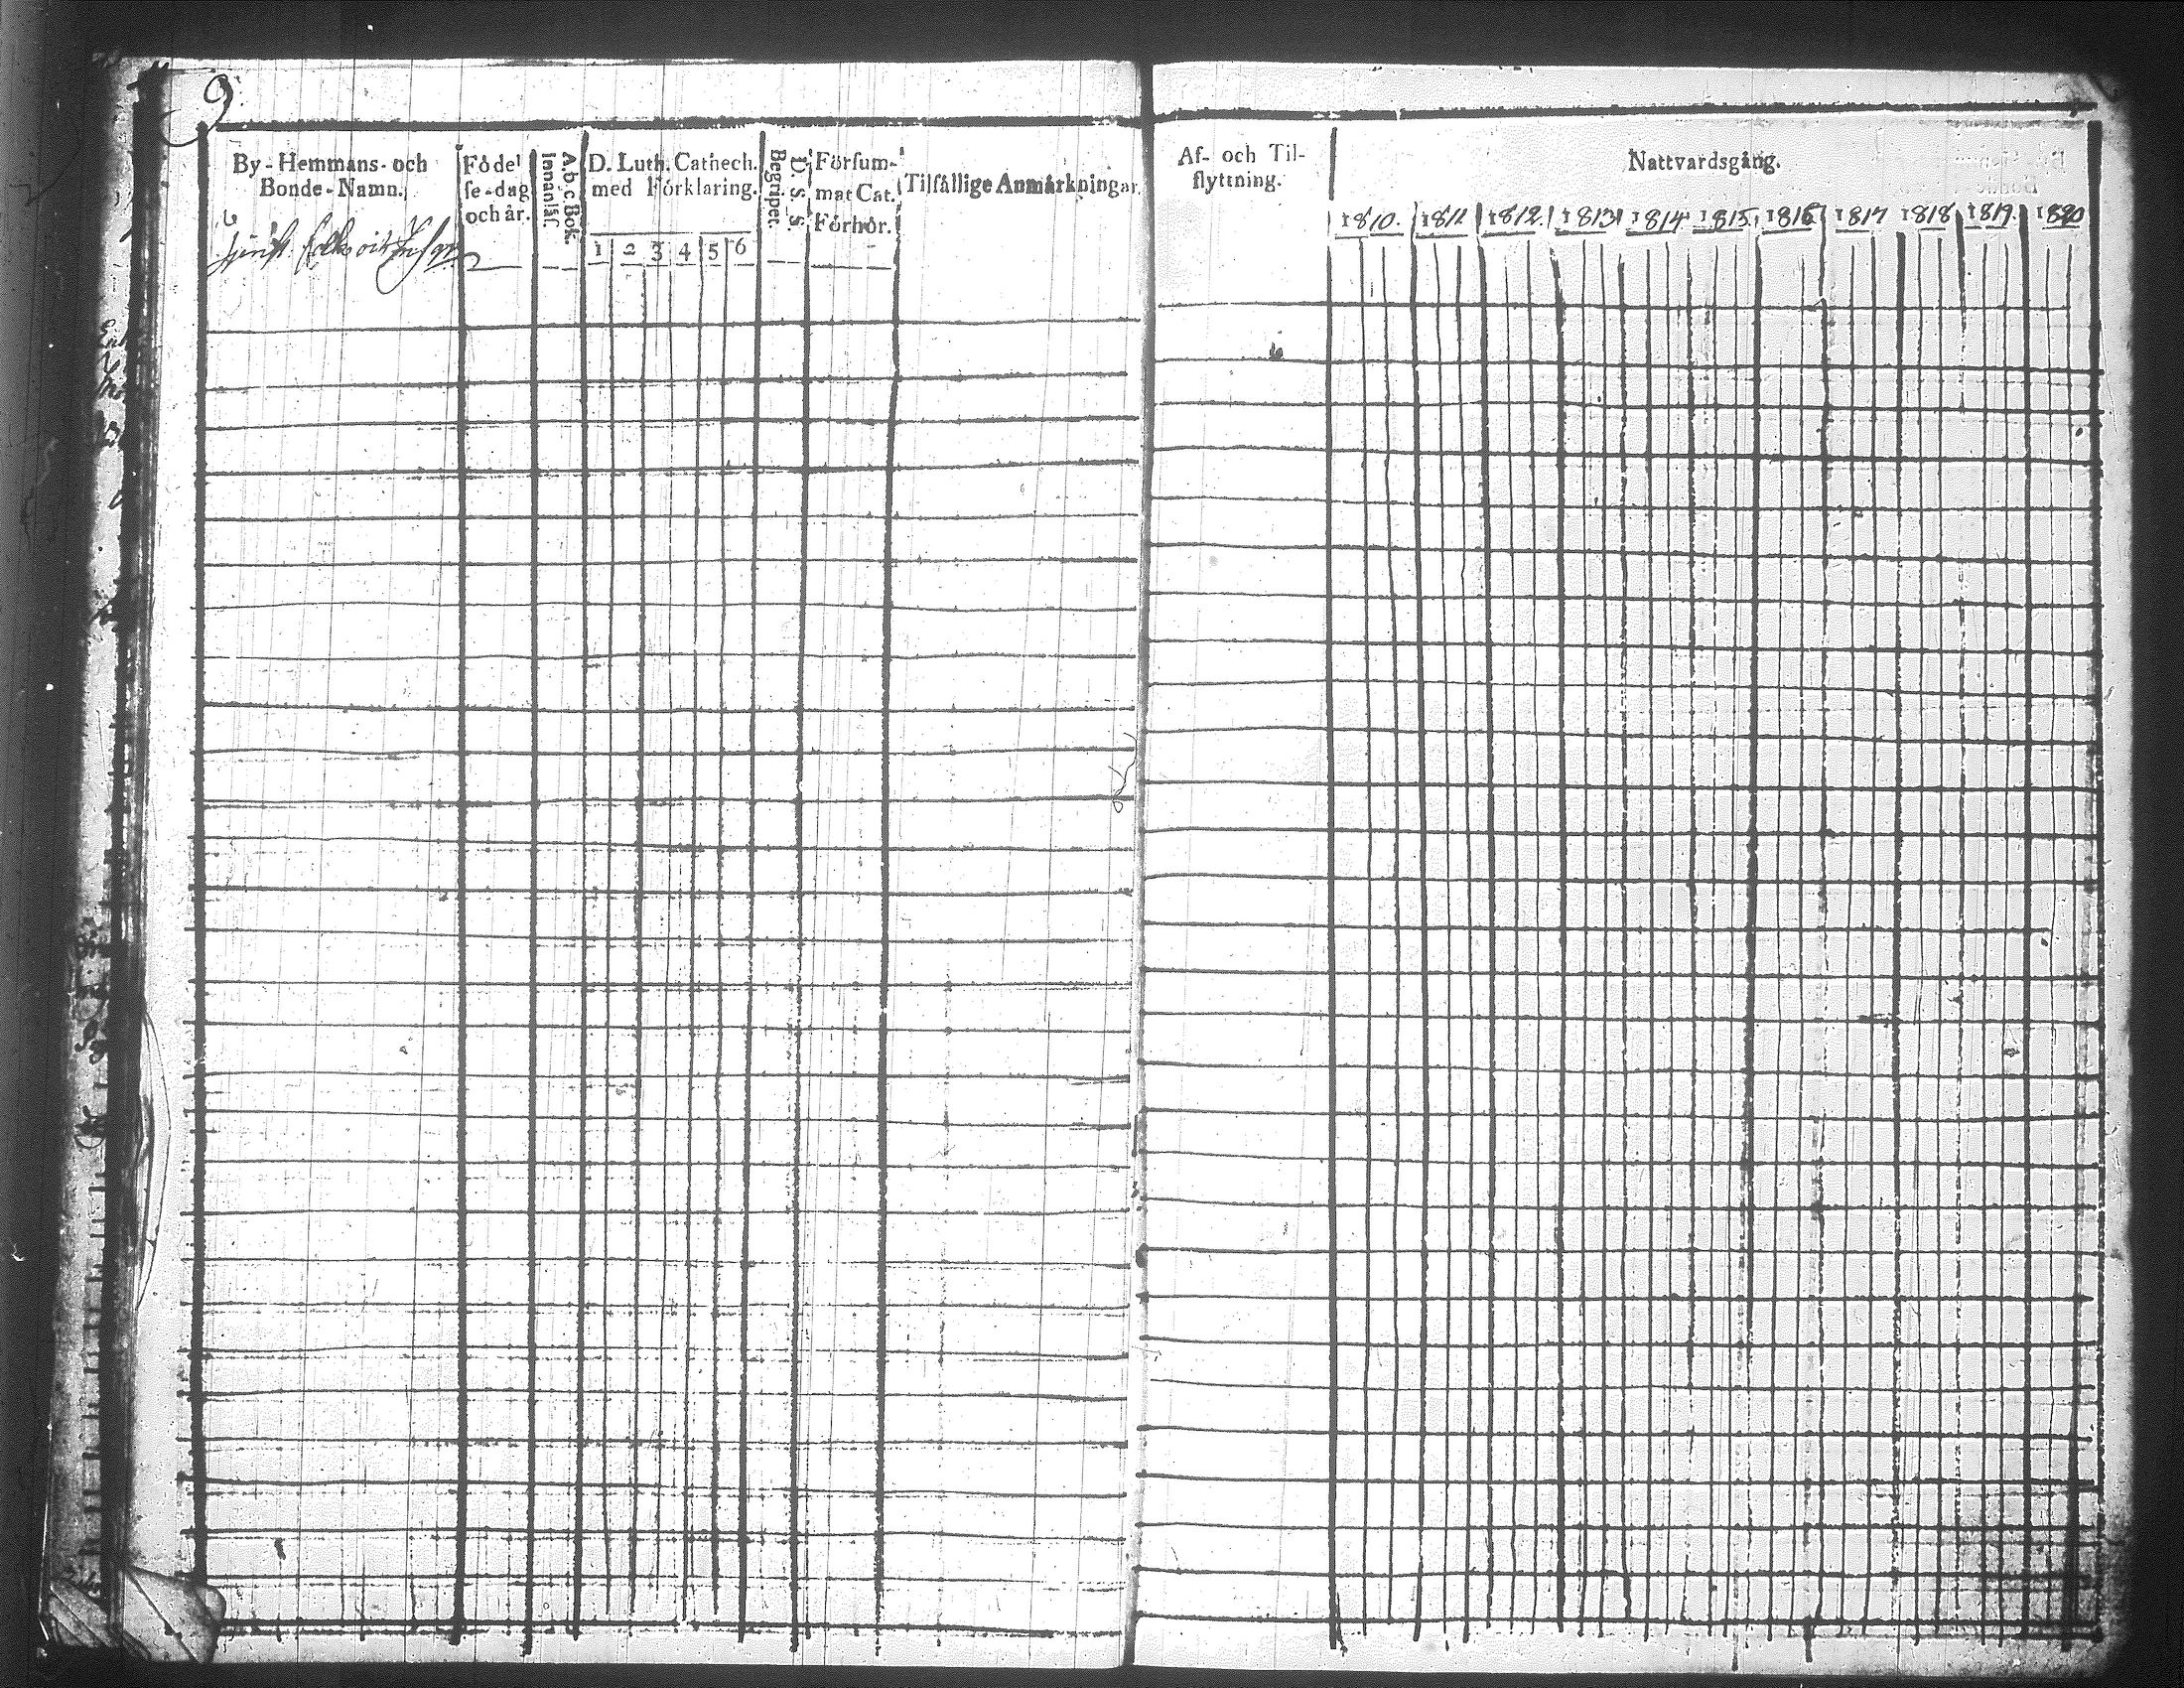 9
By-Hemmans- och
Bonde-Namn.
Födel
se-dag
och år.
Abc Bok.
Innanläs.
D. Luth. Cathech.
med Förklaring.
1 2 3 4 5 6
D. S. S.
Begriper.
Försum-
mat Cat.
Förhör.
Tilfällige Anmärkningar.
Af- och Til-
flyttning.
Nattvardsgång.
1810. 1811 1812. 1813 1814 1815. 1816 1817 1818 1819. 1820